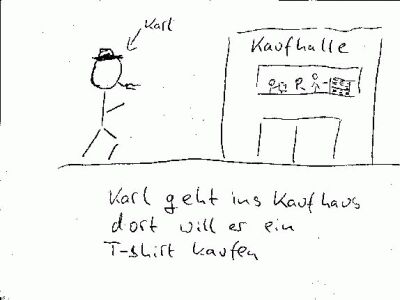 Karl
Kaufhalle
R
Karl geht ins Kaufhaus
dort will er ein
T-shirt kaufen